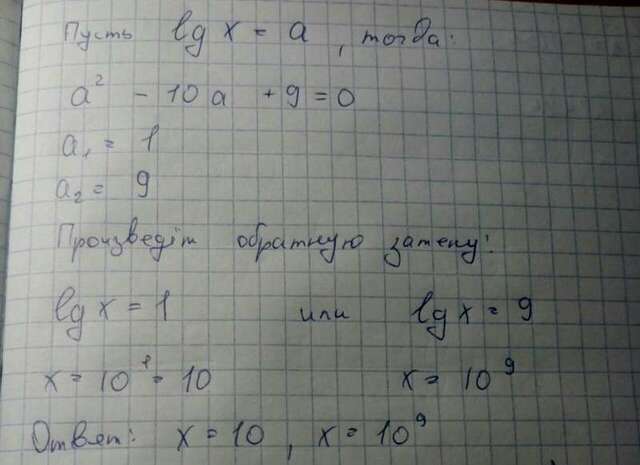 Пусть lg x = a, тогда:
a² - 10a + 9 = 0
a₁ = 1
a₂ = 9
Произведём обратную замену:
lg x = 1 или lg x = 9
x = 10¹ = 10 x = 10⁹
Ответ: x = 10, x = 10⁹